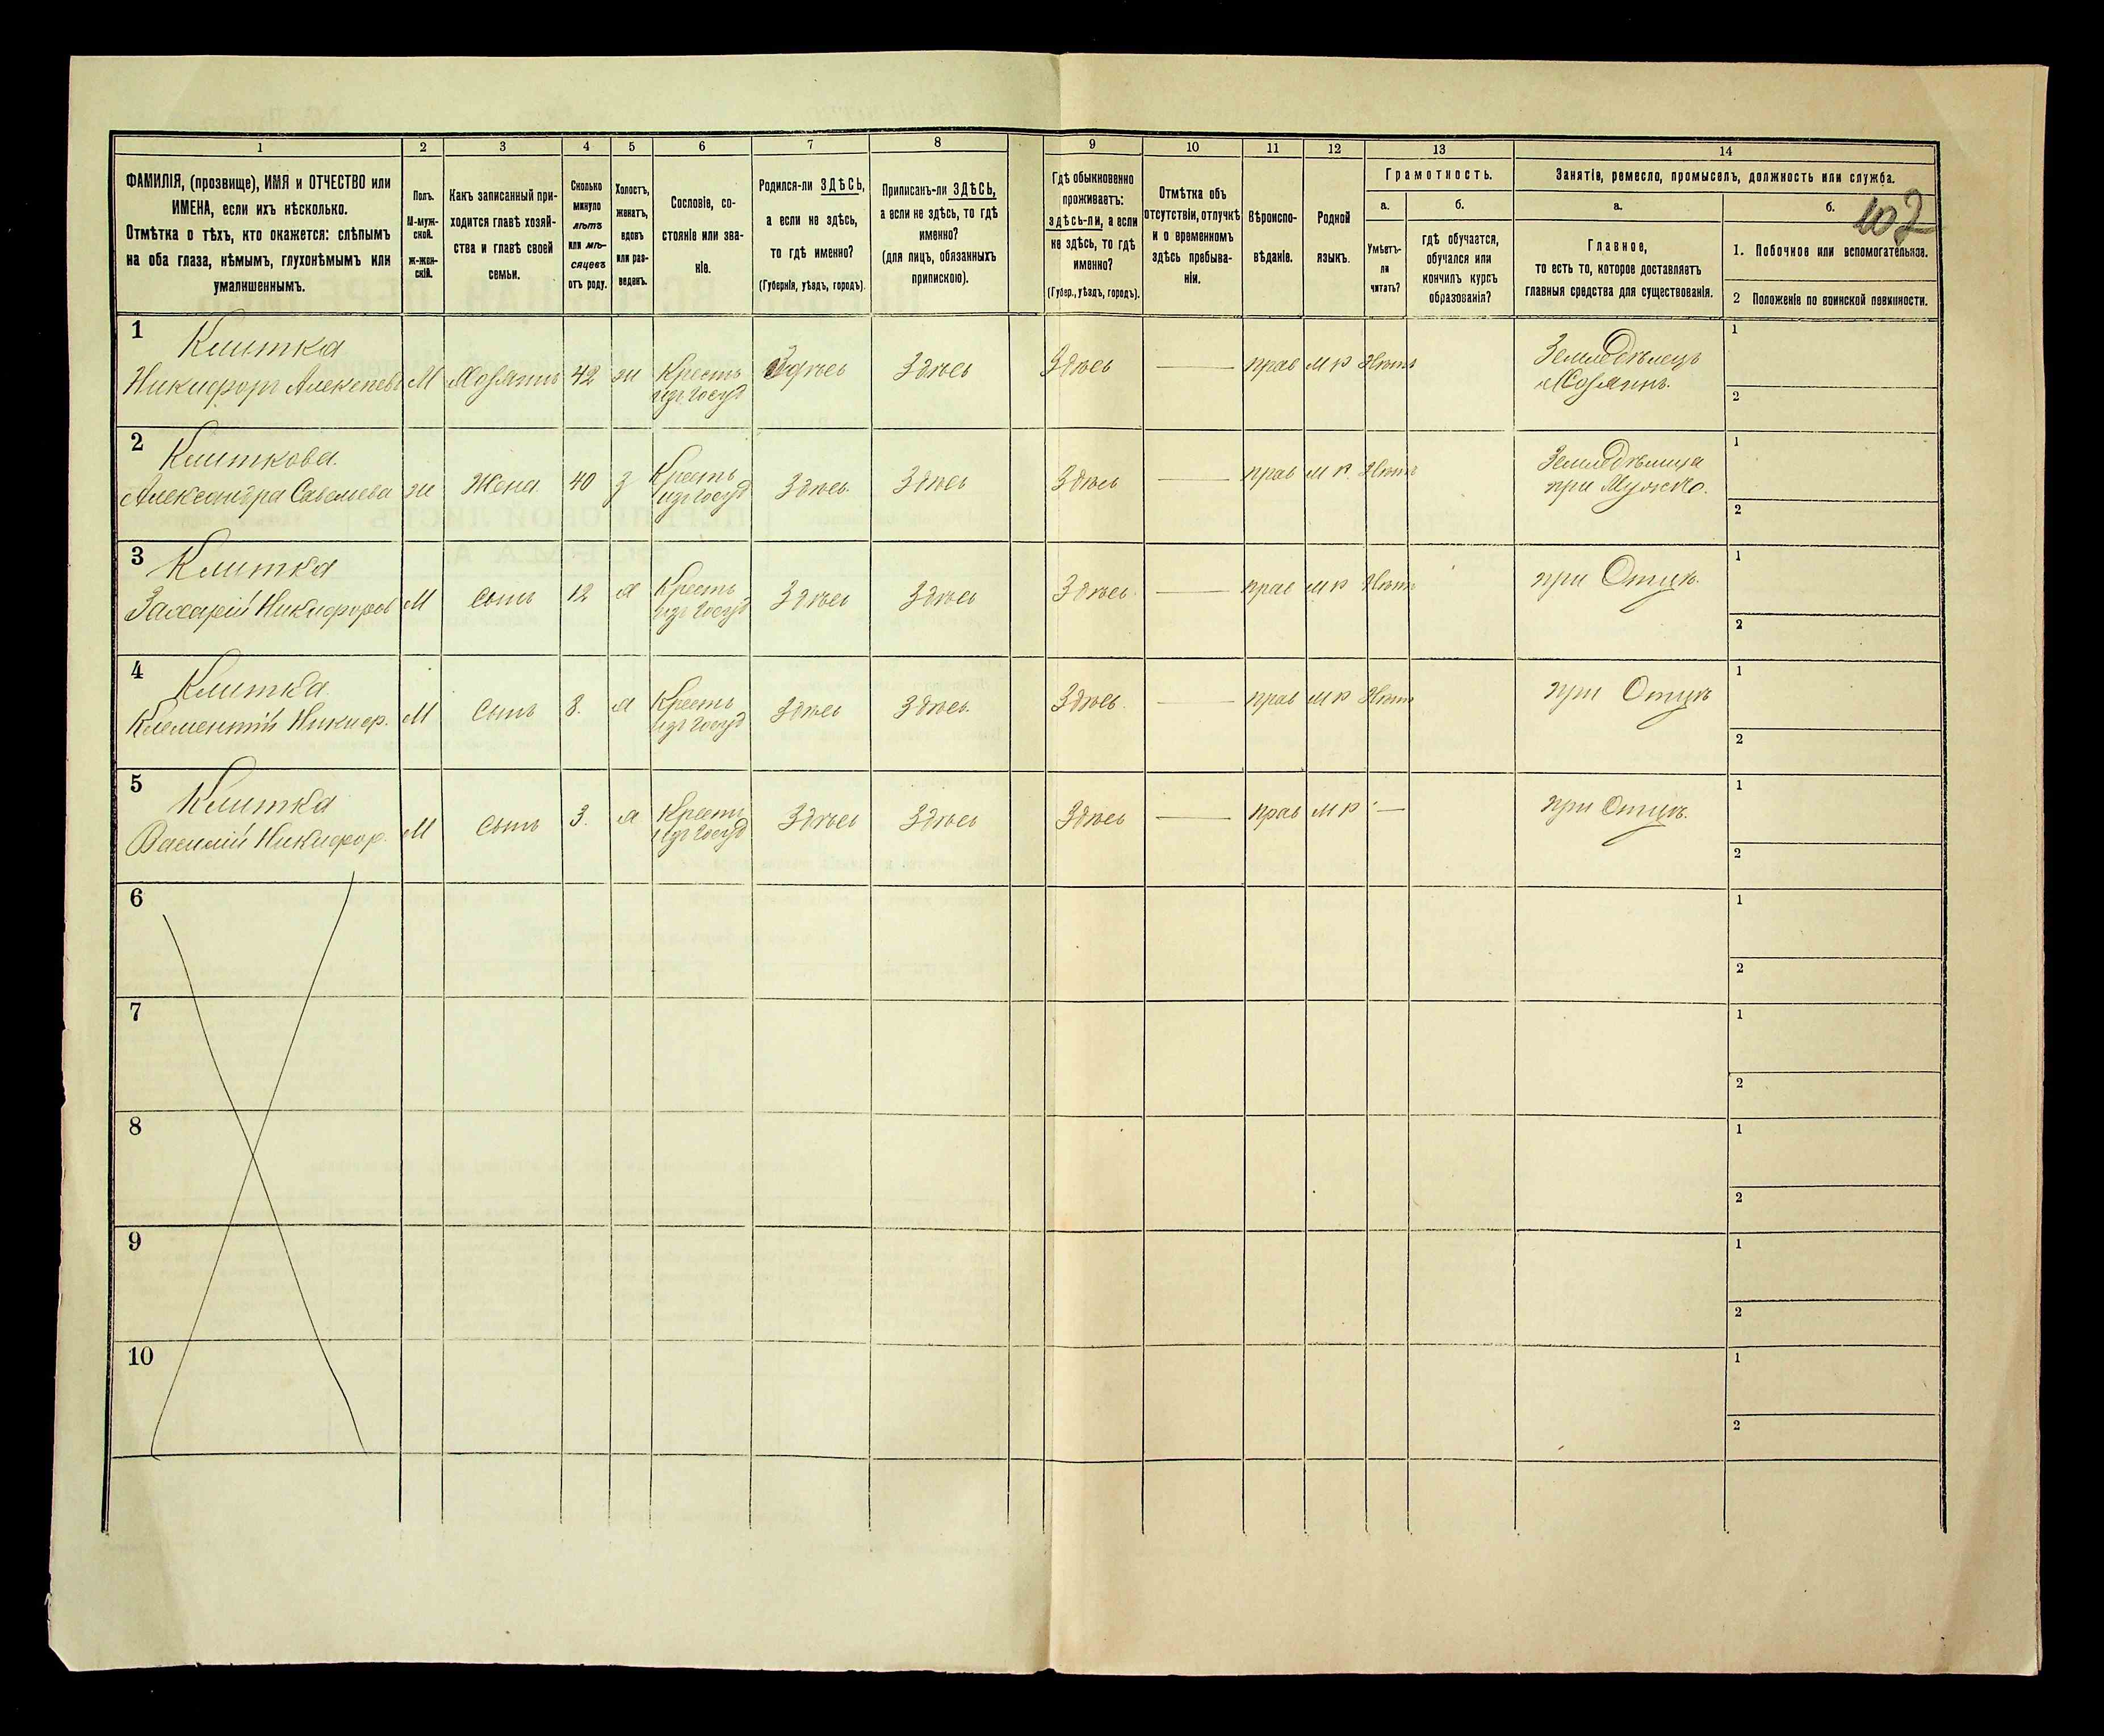 1 2 3 4 5 6 7 8 9 10 11 12 13 14
ФАМИЛІЯ, (прозвище), ИМЯ и ОТЧЕСТВО или
ИМЕНА, если ихъ нѣсколько.
Отмѣтка о тѣхъ, кто окажется: слѣпымъ
на оба глаза, нѣмымъ, глухонѣмымъ или
умалишеннымъ.
Полъ.
М-муж-
ской.
ж-жен-
скій.
Какъ записанный при-
ходится главѣ хозяй-
ства и главѣ своей
семьи.
Сколько
минуло
лѣтъ
или мѣ-
сяцевъ
отъ роду.
Холостъ,
женатъ,
вдовъ
или раз-
веденъ.
Сословіе, со-
стояніе или зва-
ніе.
Родился-ли ЗДѢСЬ,
а если не здѣсь,
то гдѣ именно?
(Губернія, уѣздъ, городъ).
Приписанъ-ли ЗДѢСЬ,
а если не здѣсь, то гдѣ
именно?
(для лицъ, обязанныхъ
припискою).
Гдѣ обыкновенно
проживаетъ:
здѣсь-ли, а если
не здѣсь, то гдѣ
именно?
(Губер., уѣздъ, городъ).
Отмѣтка объ
отсутствіи, отлучкѣ
и о временномъ
здѣсь пребыва-
ніи.
Вѣроиспо-
вѣданіе.
Родной
языкъ.
Грамотность.
а.
Умѣетъ-
ли
читать?
б.
гдѣ обучается,
обучался или
кончилъ курсъ
образованія?
Занятіе, ремесло, промыселъ, должность или служба.
а.
Главное,
то есть то, которое доставляетъ
главныя средства для существованія.
б.
102
1. Побочное или вспомогательное.
2 Положеніе по воинской повинности.
1
Клитка
Никифоръ Алексѣевъ М Хозяинъ 42 ж Кресть
изъ госуд Здѣсь Здѣсь Здѣсь — прав м р Нѣтъ Земледѣлецъ
Хозяинъ.
1
2
2
Клиткова
Александра Савельева ж Жена 40 з Кресть
изъ госуд Здѣсь Здѣсь Здѣсь — прав м р. Нѣтъ Земледѣлица
при Мужѣ.
1
2
3
Клитка
Захарій Никифоров М Сынъ 12 х Кресть
изъ госуд Здѣсь Здѣсь Здѣсь — прав м р Нѣтъ при Отцѣ.
1
2
4
Клитка
Клементій Никиф. М Сынъ 8. х Кресть
изъ госуд Здѣсь Здѣсь Здѣсь — прав м р Нѣтъ при Отцѣ
1
2
5
Клитка
Василій Никифор. М Сынъ 3. х Кресть
изъ госуд Здѣсь Здѣсь Здѣсь — прав м р — при Отцѣ.
1
2
6
1
2
7
1
2
8
1
2
9
1
2
10
1
2